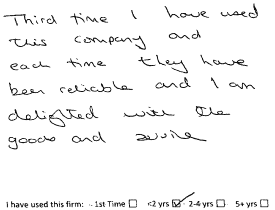 Third time I have used
this company and
each time they have
been reliable and I am
delighted with the
goods and service
I have used this firm: 1st Time ☐ <2 yrs ☑ 2-4 yrs ☐ 5+ yrs ☐